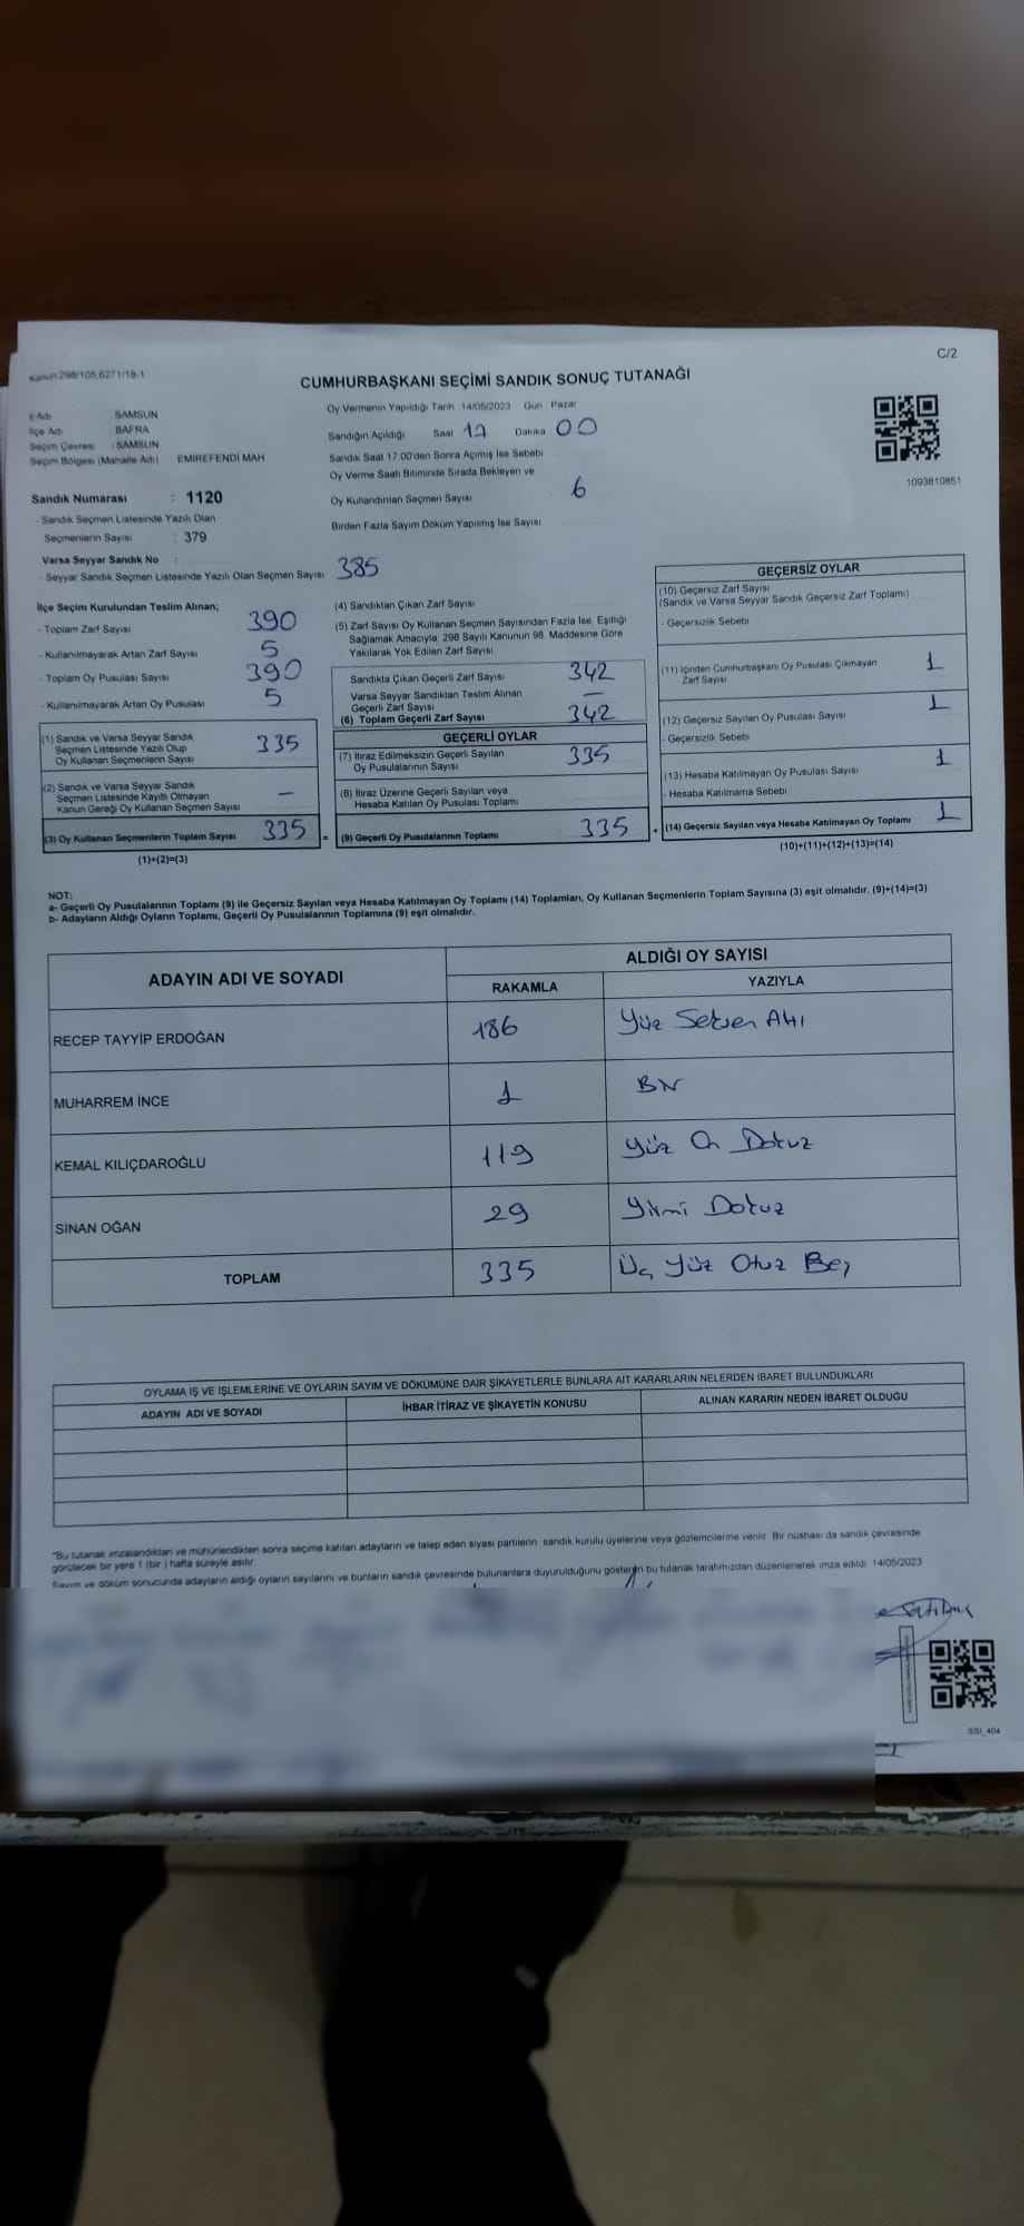 Kanun 298/105,6271/18-1
C/2
CUMHURBAŞKANI SEÇİMİ SANDIK SONUÇ TUTANAĞI
İl Adı : SAMSUN
İlçe Adı : BAFRA
Seçim Çevresi : SAMSUN
Seçim Bölgesi (Mahalle Adı) : EMIREFENDI MAH
Sandık Numarası : 1120
- Sandık Seçmen Listesinde Yazılı Olan
Seçmenlerin Sayısı : 379
Varsa Seyyar Sandık No :
- Seyyar Sandık Seçmen Listesinde Yazılı Olan Seçmen Sayısı 385
Oy Vermenin Yapıldığı Tarih 14/05/2023 Gün Pazar
Sandığın Açıldığı Saat 17 Dakika 00
Sandık Saat 17.00'den Sonra Açılmış İse Sebebi
Oy Verme Saati Bitiminde Sırada Bekleyen ve
Oy Kullandırılan Seçmen Sayısı 6
Birden Fazla Sayım Döküm Yapılmış İse Sayısı
1093810851
İlçe Seçim Kurulundan Teslim Alınan;
- Toplam Zarf Sayısı 390
- Kullanılmayarak Artan Zarf Sayısı 5
- Toplam Oy Pusulası Sayısı 390
- Kullanılmayarak Artan Oy Pusulası 5
(1) Sandık ve Varsa Seyyar Sandık
Seçmen Listesinde Yazılı Olup
Oy Kullanan Seçmenlerin Sayısı 335
(2) Sandık ve Varsa Seyyar Sandık
Seçmen Listesinde Kayıtlı Olmayan
Kanun Gereği Oy Kullanan Seçmen Sayısı —
(3) Oy Kullanan Seçmenlerin Toplam Sayısı 335 =
(1)+(2)=(3)
(4) Sandıktan Çıkan Zarf Sayısı
(5) Zarf Sayısı Oy Kullanan Seçmen Sayısından Fazla İse, Eşitliği
Sağlamak Amacıyla, 298 Sayılı Kanunun 98. Maddesine Göre
Yakılarak Yok Edilen Zarf Sayısı
Sandıkta Çıkan Geçerli Zarf Sayısı 342
Varsa Seyyar Sandıktan Teslim Alınan
Geçerli Zarf Sayısı —
(6) Toplam Geçerli Zarf Sayısı 342
GEÇERLİ OYLAR
(7) İtiraz Edilmeksizin Geçerli Sayılan
Oy Pusulalarının Sayısı 335
(8) İtiraz Üzerine Geçerli Sayılan veya
Hesaba Katılan Oy Pusulası Toplamı
(9) Geçerli Oy Pusulalarının Toplamı 335 +
GEÇERSİZ OYLAR
(10) Geçersiz Zarf Sayısı
(Sandık ve Varsa Seyyar Sandık Geçersiz Zarf Toplamı)
- Geçersizlik Sebebi
(11) İçinden Cumhurbaşkanı Oy Pusulası Çıkmayan
Zarf Sayısı 1
(12) Geçersiz Sayılan Oy Pusulası Sayısı 1
- Geçersizlik Sebebi
(13) Hesaba Katılmayan Oy Pusulası Sayısı 1
- Hesaba Katılmama Sebebi
(14) Geçersiz Sayılan veya Hesaba Katılmayan Oy Toplamı 1
(10)+(11)+(12)+(13)=(14)
NOT:
a- Geçerli Oy Pusulalarının Toplamı (9) ile Geçersiz Sayılan veya Hesaba Katılmayan Oy Toplamı (14) Toplamları, Oy Kullanan Seçmenlerin Toplam Sayısına (3) eşit olmalıdır. (9)+(14)=(3)
b- Adayların Aldığı Oyların Toplamı, Geçerli Oy Pusulalarının Toplamına (9) eşit olmalıdır.
ADAYIN ADI VE SOYADI
ALDIĞI OY SAYISI
RAKAMLA YAZIYLA
RECEP TAYYİP ERDOĞAN 186 Yüz Seksen Altı
MUHARREM İNCE 1 Bir
KEMAL KILIÇDAROĞLU 119 Yüz On Dokuz
SİNAN OĞAN 29 Yirmi Dokuz
TOPLAM 335 Üç Yüz Otuz Beş
OYLAMA İŞ VE İŞLEMLERİNE VE OYLARIN SAYIM VE DÖKÜMÜNE DAİR ŞİKAYETLERLE BUNLARA AİT KARARLARIN NELERDEN İBARET BULUNDUKLARI
ADAYIN ADI VE SOYADI İHBAR İTİRAZ VE ŞİKAYETİN KONUSU ALINAN KARARIN NEDEN İBARET OLDUĞU
"Bu tutanak imzalandıktan ve mühürlendikten sonra seçime katılan adayların ve talep eden siyasi partilerin sandık kurulu üyelerine veya gözlemcilerine verilir. Bir nüshası da sandık çevresinde
görülecek bir yere 1 (bir) hafta süreyle asılır.
Sayım ve döküm sonucunda adayların aldığı oyların sayılarını ve bunların sandık çevresinde bulunanlara duyurulduğunu gösteren bu tutanak tarafımızdan düzenlenerek imza edildi. 14/05/2023
SSI_404